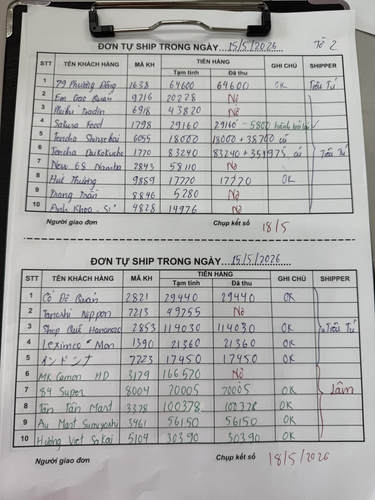 ĐƠN TỰ SHIP TRONG NGÀY...15/5/2026 Tờ 2
STT TÊN KHÁCH HÀNG MÃ KH TIỀN HÀNG GHI CHÚ SHIPPER
Tạm tính Đã thu
1 79 Phương Đông 1638 64600 64600 OK Tiểu Tú
2 Em Gác Quán 9716 20228 Nợ
3 6918 43820 Nợ
4 Sakura Food 1798 29160 29160 -5800
5 6055 18000 18000 + 38700
6 Tencha Daikokucho 1770 83240 83240 + Tiểu Tú
7 New 68 Namba 2843 58110 Nợ
8 Huế Thương 9869 17770 17770 OK
9 Trang Trần 8846 5280 Nợ
10 Anh Khoa - Sĩ 4828 14976 Nợ
Người giao đơn Chụp kết sổ 18/5
ĐƠN TỰ SHIP TRONG NGÀY...15/5/2026
STT TÊN KHÁCH HÀNG MÃ KH TIỀN HÀNG GHI CHÚ SHIPPER
Tạm tính Đã thu
1 Cố Đô Quán 2821 29440 29440 OK
2 Tanoshi Nippon 7213 49755 Nợ
3 Shop Quế Hanazono 2853 114030 114030 OK Tiểu Tú
4 Leximco Mon 1390 21360 21360 OK
5 インドンナ 7223 17450 17450 OK
6 MK Comon HD 3179 166570 Nợ
7 84 Super 8004 70005 70005 OK Lâm
8 Tân Tân Mart 3378 100378 100378 OK
9 Au Mart Sumiyoshi 3461 56150 56150 OK
10 Hương Việt Sakai 5104 30390 30390 OK
Người giao đơn Chụp kết sổ 18/5/2026